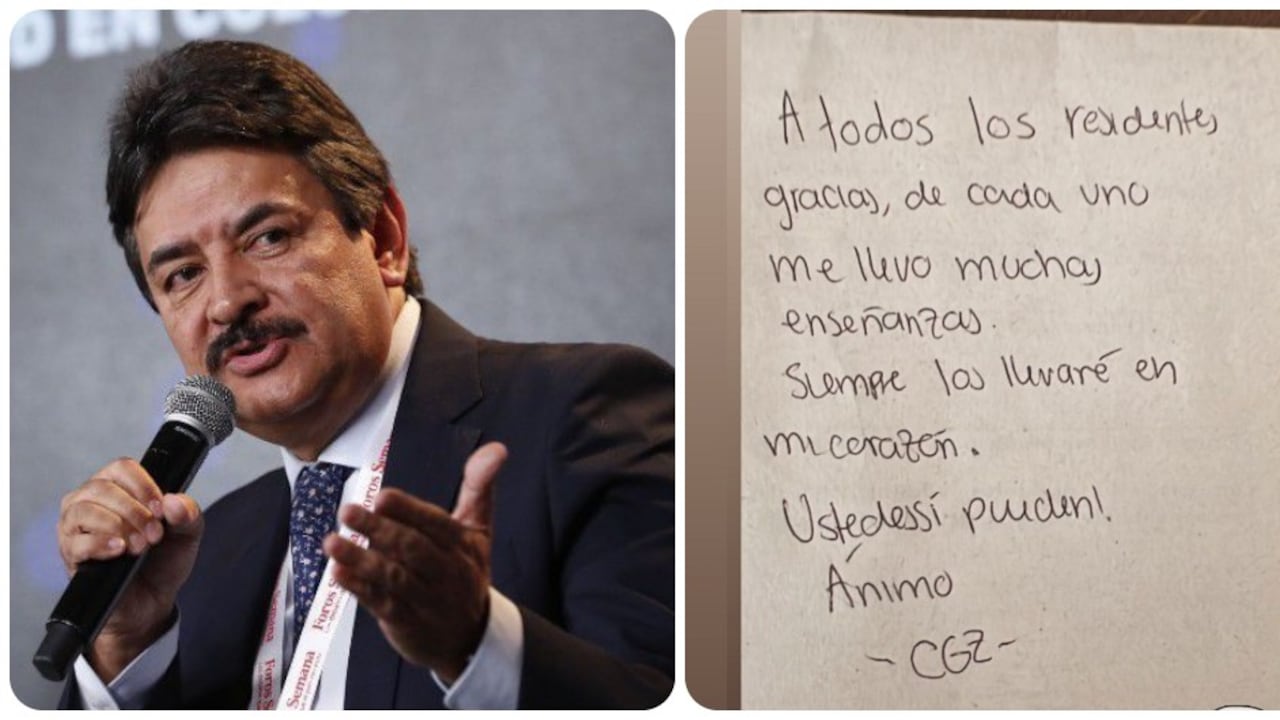 EN
Foros Semana
Semana
Foros S
A todos los residentes
gracias, de cada uno
me llevo muchas
enseñanzas.
Siempre los llevaré en
mi corazón.
Ustedes sí pueden!
Ánimo
- CGZ -